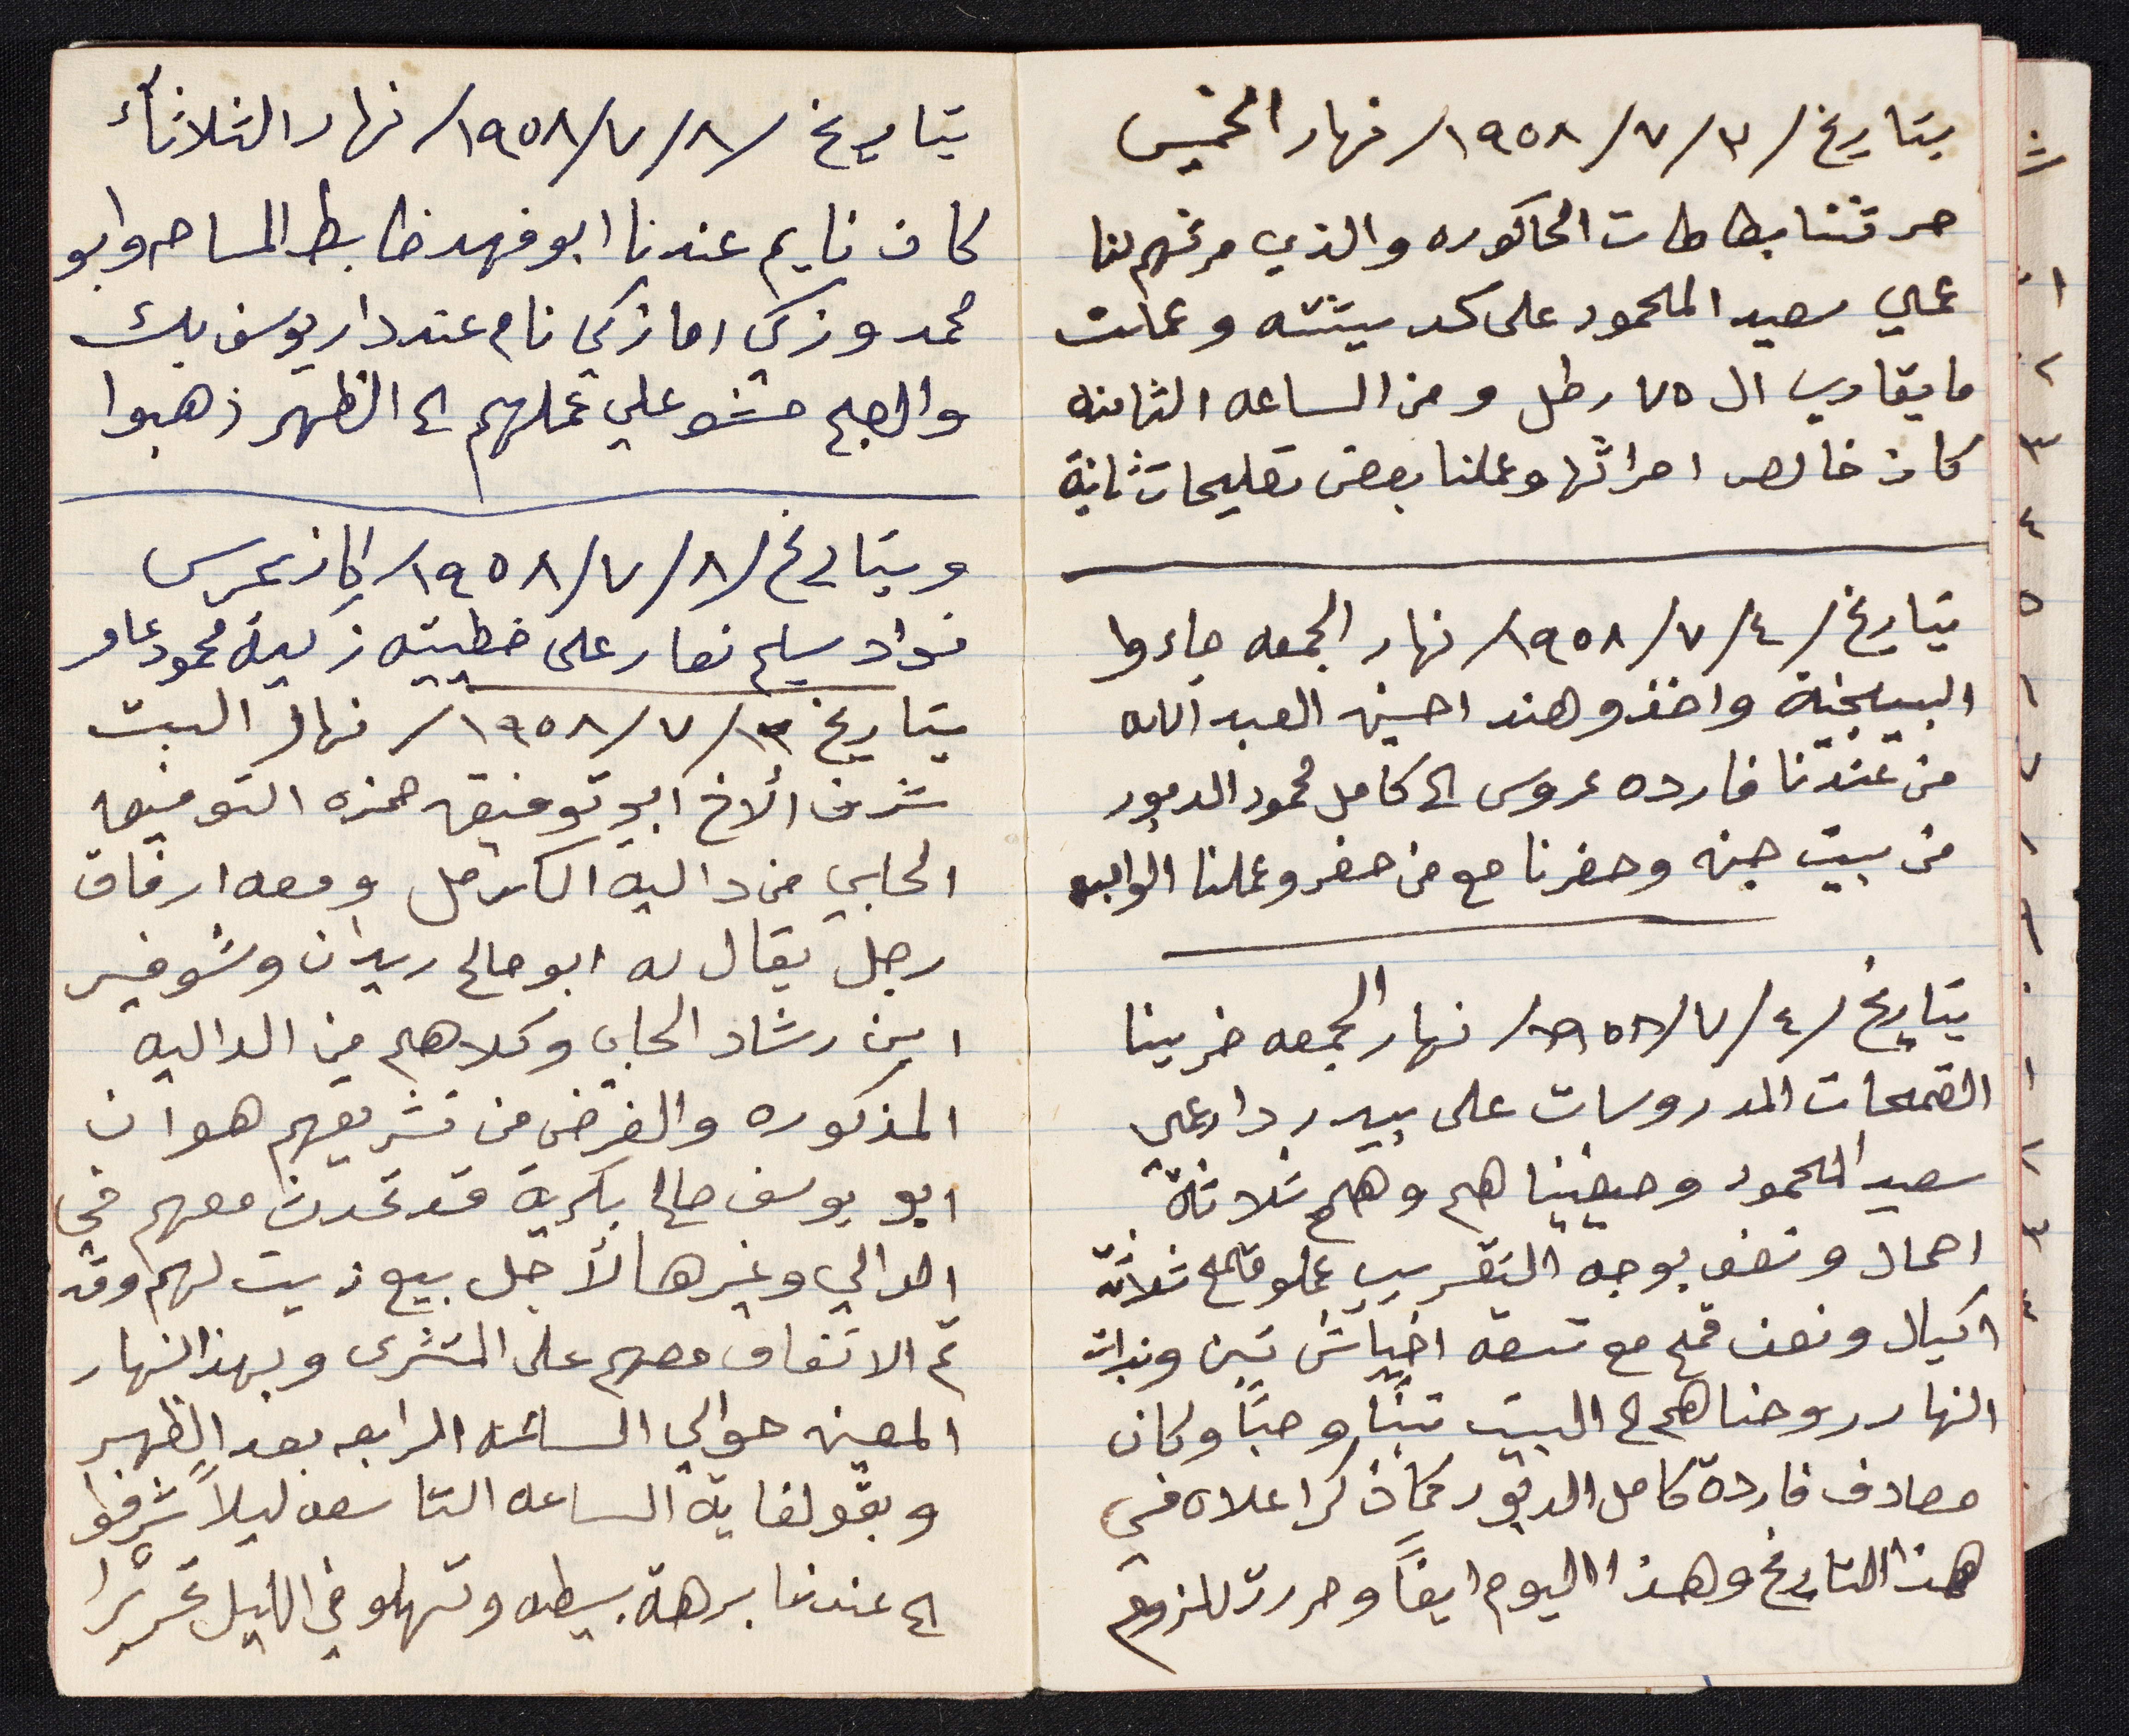 بتاريخ /٣/٧/١٩٥٨/ نهار الخميس
حرثنا بطاطات الحاكوره والذي حرثهم لنا
عمي سعيد المحمود على كد بيتته وعملت
ما يقارب ال ٧٥ رطل ومن الساعه الثامنه
كان خالص احراثها وعملنا بعض تصليحات ثانية
بتاريخ /٤/٧/١٩٥٨/ نهار الجمعه جاءوا
البيتجنية واخذو هند احسين العبد الله
من عندنا فارده عروس الى كامل محمود الدبور
من بيت جنه وحضرنا مع من حضر وعملنا الواجب
بتاريخ /٤/٧/١٩٥٨/ نهار الجمعه ضرينا
القمحات المدروسات على بيدر دار عمي
سعيد المحمود وصيفيناهم وهم ثلاثة
احمال ونصف بوجه التقريب عملو قمح ثلاثة
اكيال ونصف قمح مع تسعه اخياش تبن وبذات
النهار روحناهم الى البيت تبناً وحباً وكان
مصادف فاردة كامل الدبور كما ذكر اعلاه في
هذا التاريخ وهذا اليوم ايضاً وحررة للمزعوم
بتاريخ /٨/٧/١٩٥٨/ نهار الثلاثاء
كان نايم عندنا ابو فهد ضابط المساحه وابو
محمد وزكي اما زكي نام عند دار يوسف بك
والصبح مشو على عملهم الى الظهر ذهبوا
وبتاريخ /٨/٧/١٩٥٨/ كان عرس
فواد سليم نصار على خطيبته زبيدة محمود عامر
بتاريخ ١٢/٧/١٩٥٨/ نهار السبت
شرف الأخ ابو توفيق حمزه التوفيق
الحلبي من دالية الكرمل ومعه ارفاق
رجل يقال له ابو صالح زيدان وشوفير
ابن رشاد الحلبي وكلاهم من الداليه
المذكوره والغرض من تشريفهم هو ان
ابو يوسف صالح بكرية قد تحدث معهم في
الدالي وغيرها لأجل بيع زيت لهم وقد
تم الاتفاق معهم على المشترى وبهذا النهار
المعين حوالي الساعه الرابعه بعد الظهر
وبقو لغاية الساعه التاسعه ليلاً شرفوا
الى عندنا برهة بسيطه وتسهلو في الليل تحريرا